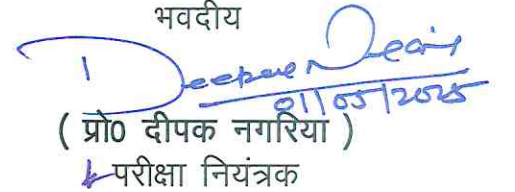 भवदीय
Deepak Nagaria
01/05/2025
( प्रो0 दीपक नगरिया )
परीक्षा नियंत्रक